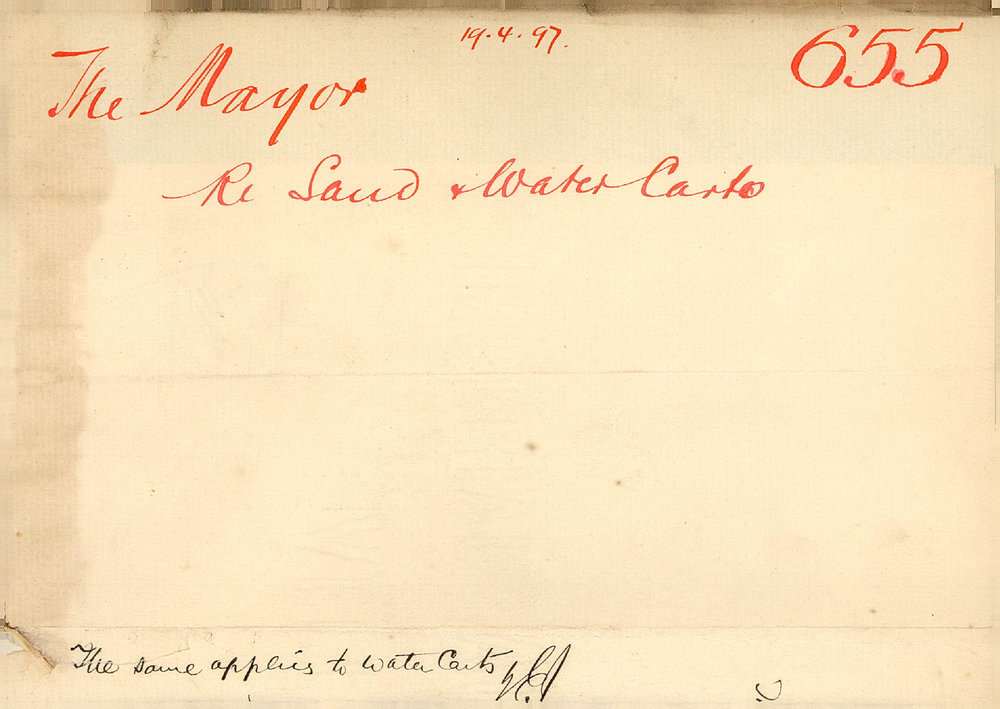 19.4.97.
655
The Mayor
Re Sand & Water Carts
The same applies to water Carts